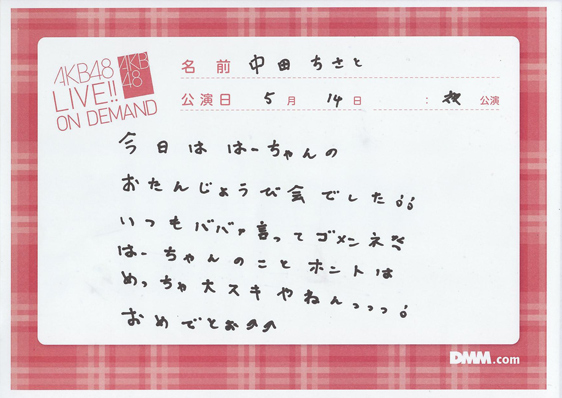 AKB48
LIVE!!
ON DEMAND
AKB
48
名前 中田ちさと
公演日 5月 14日 : 夜 公演
今日は はーちゃんの
おたんじょうび会でした!!
いつもババァ言ってゴメンネ
はーちゃんのこと ホントは
めっちゃ大スキやねんっっっ!
おめでとぉ
DMM.com